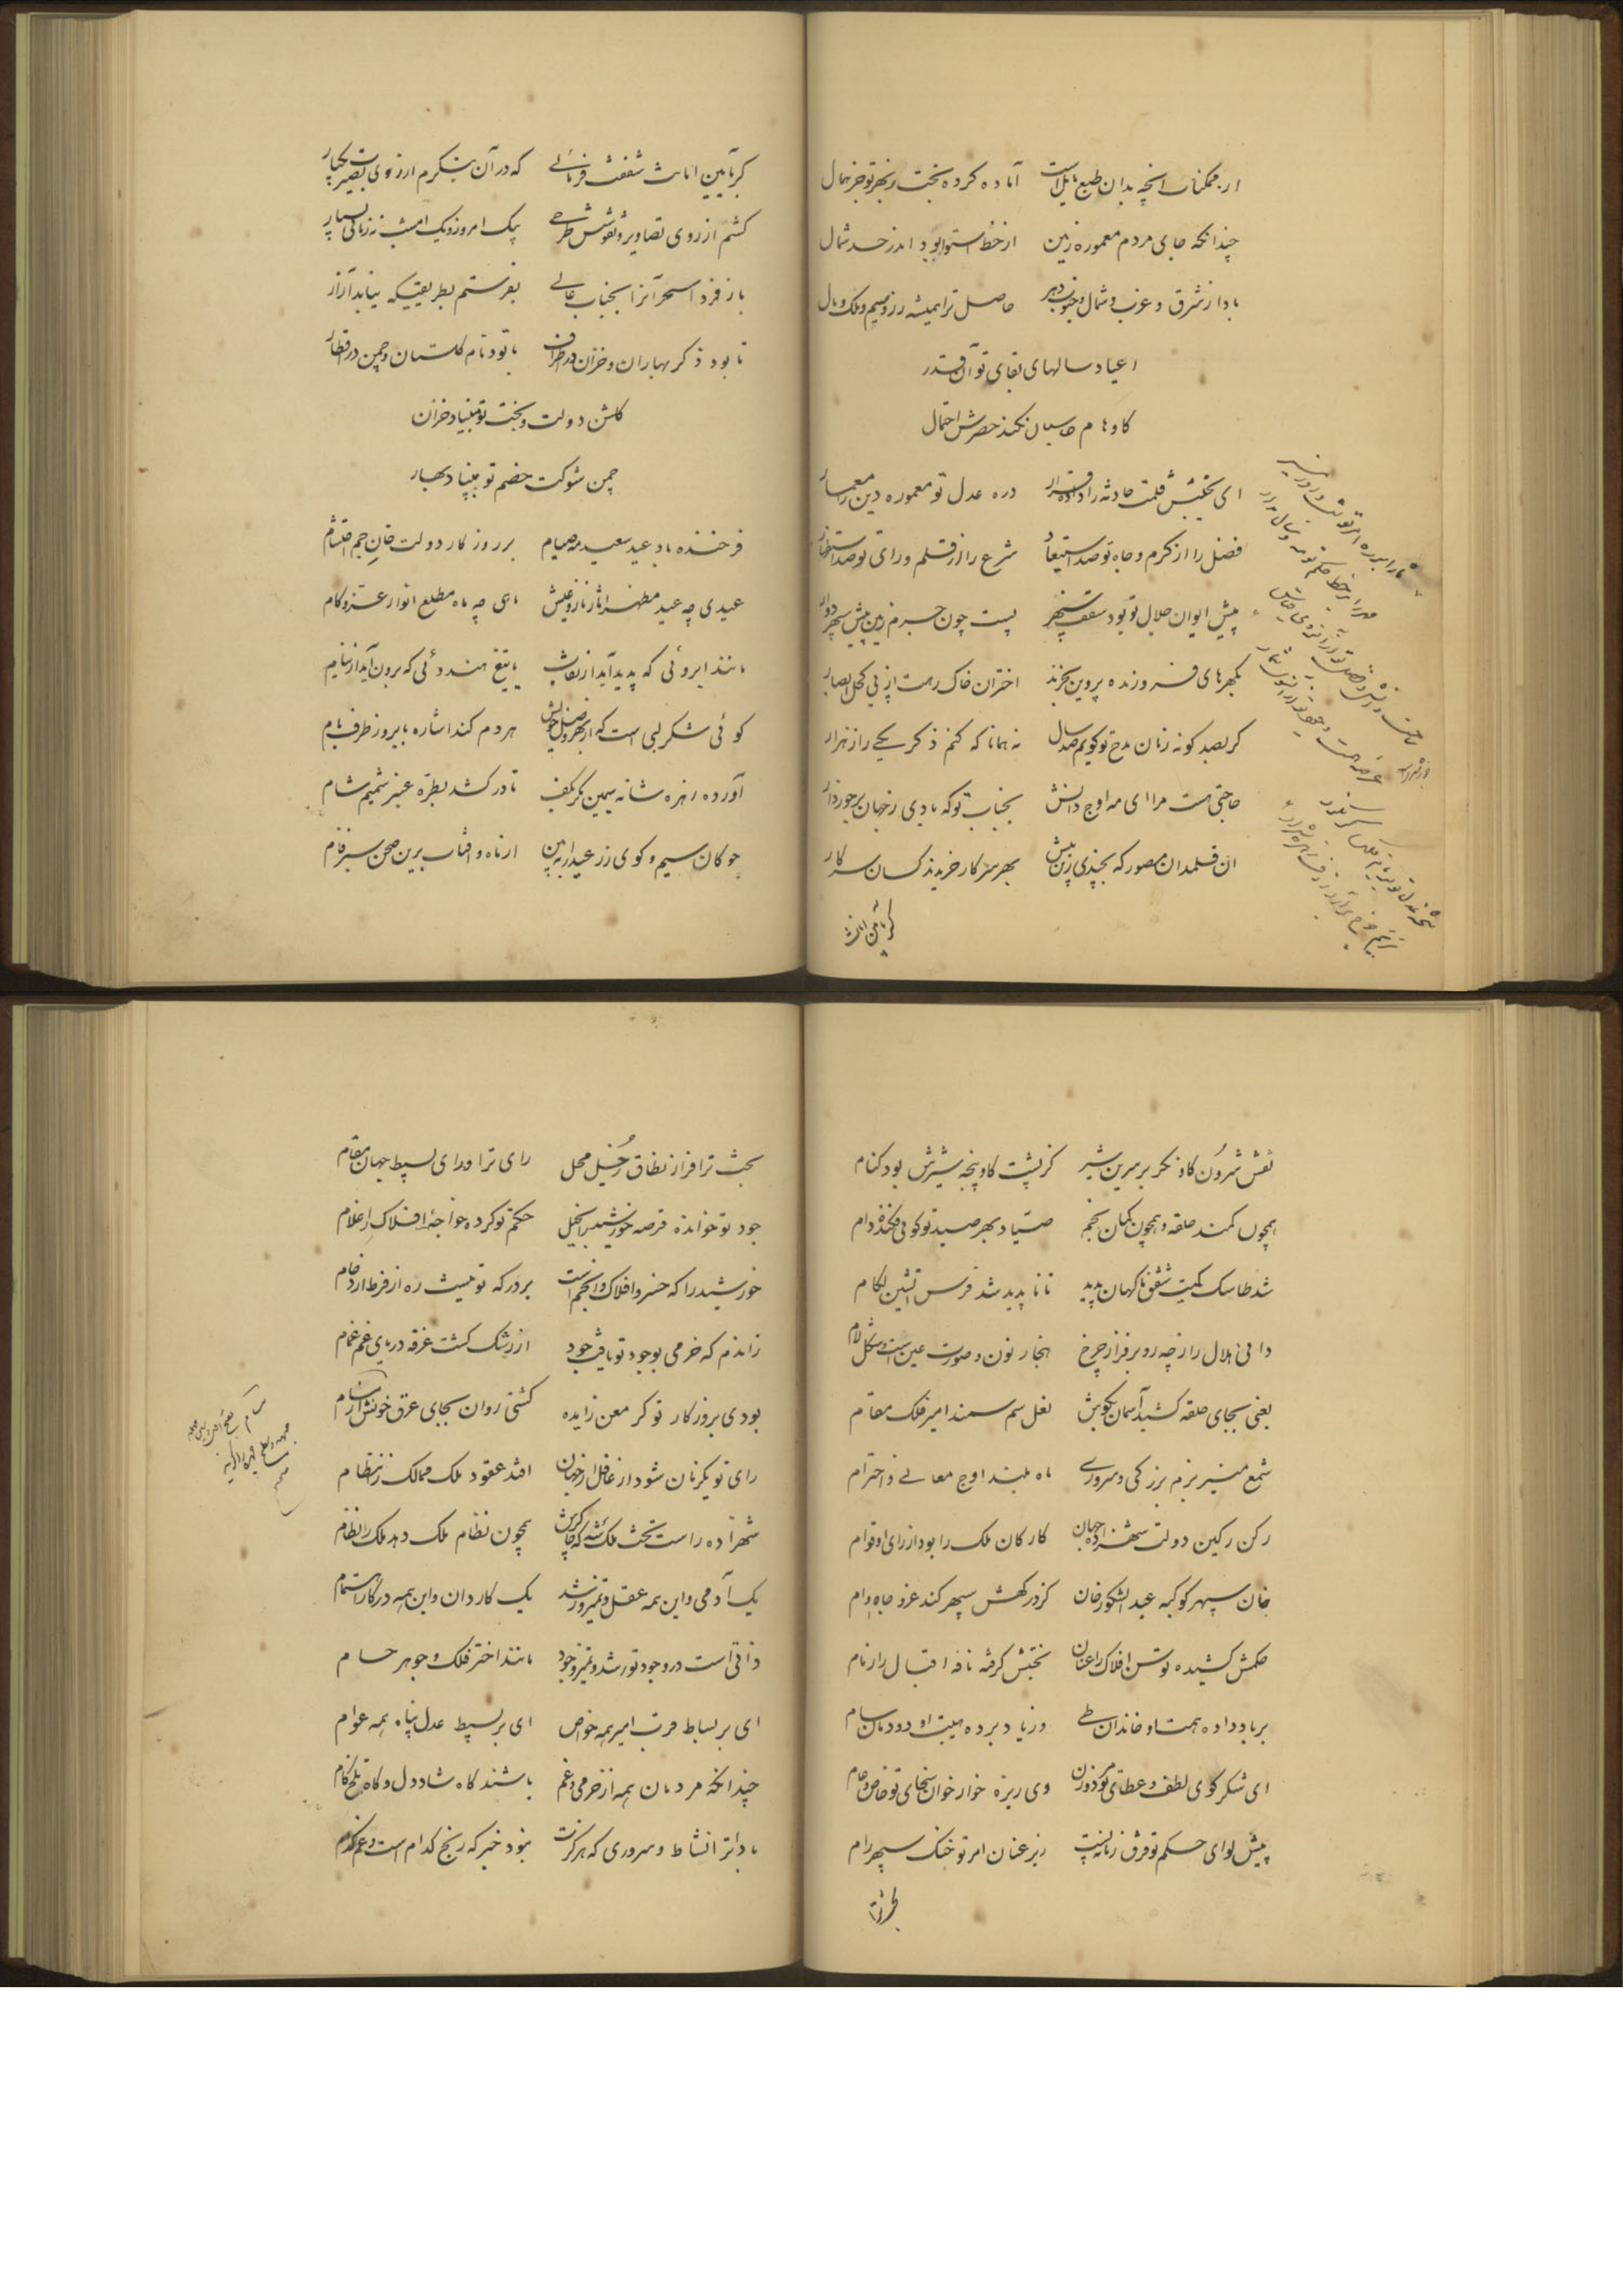 از ممکنات آنچه بدان طبع مایل است آماده کرده بخت ز بهر تو جز همال
چندانکه جای مردم معموره زمین از خط استوا بود اندر حد شمال
بادا ز شرق و غرب و شمال و جنوب دهر حاصل ترا همیشه زر و سیم و ملک و مال
اعیاد سالهای بقای تو آن قدر
کاوهام حاسبان نکند حصرش احتمال
ای بخت حادثه را داده قرار در ره عدل تو معموره دین را معمار
فضل را از کرم و جاه تو صد استبعاد شرع را از قلم و رای تو صد استظهار
پیش ایوان جلال تو بود سقف سپهر پست چون جرم زمین پیش سپهر دوار
گهرهای فروزنده پروین بخرند اختران خاک رهت از پی کحل ابصار
گر بصد گونه زبان مدح تو گویم صد سال نه همانا که کنم ذکر یکی را ز هزار
حاجتی هست مرا ای مه اوج دانش بجناب تو که بادی ز جهان برخوردار
آن قلمدان مصور که بچندی زین پیش بهر سرکار خریدند کسان سرکار
گر بآیین امانت
گر بآیین امانت شفقت فرمائی که در آن بنگرم از روی بصیرت یکبار
کشم از روی تصاویر و نقوشش طرحی یک امروز و یک امشب نه زمانی بسیار
باز فردا سحر آنرا بجناب عالی بفرستم بطریقیکه نیابد آزار
تا بود ذکر بهاران و خزان در اطراف تا بود نام گلستان و چمن در اقطار
گلشن دولت و بخت تو مبیناد خزان
چمن شوکت خصم تو مبیناد بهار
فرخنده باد عید سعید مه صیام بر روزگار دولت خان جم احتشام
عیدی چه عید مظهر آثار ناز و عیش ماهی چه ماه مطلع انوار عز و کام
مانند ابروئی که پدید آید از نقاب یا تیغ هندوئی که برون آید از نیام
گوئی شکر لبی است که از بهر وصل خویش هر دم کند اشاره بابرو ز طرف بام
آورده زهره شانه سیمین مگر بکف تا درکشد بطره عنبر شمیم شام
چوگان سیم و گوی زر عید را ببین از ماه و آفتاب برین صحن سبزفام
نقش سرون گاو نگر بر سرین شیر کز پشت گاو پنجه شیرش بود کنام
همچون کمند حلقه و همچون کمان بخم صیاد بهر صید تو گوئی فکنده دام
شد طاسک کمیت شفق ناگهان پدید تا ناپدید شد فرس آتشین لگام
دانی هلال را ز چه رو بر فراز چرخ هنجار نون و صورت عین است و شکل لام
یعنی بجای حلقه کشید آسمان بگوش نعل سم سمند امیر فلک مقام
شمع منیر بزم بزرگی و سروری ماه بلند اوج معالی و احترام
رکن رکین دولت شهزاده جهان کارکان ملک را بود از رای او قوام
خان سپهر کوکبه عبدالشکور خان کز درگهش سپهر کند عز و جاه وام
حکمش کشیده توسن افلاک را عنان بختش گرفته ناقه اقبال را زمام
بر باد داده همت او خاندان طی وز یاد برده هیبت او دودمان سام
ای شکرگوی لطف و عطای تو مرد و زن وی ریزه خوار خوان سخای تو خاص و عام
پیش لوای حکم تو فرق زمانه پست زیر عنان امر تو خنگ سپهر رام
بخت ترا
بخت ترا فراز نطاق زحل محل رای ترا ورای بسیط جهان مقام
جود تو خوانده قرصه خورشید را بخیل حکم تو کرده خواجه افلاک را غلام
خورشید را که خسرو افلاک و انجم است بر درگه تو نیست ره از فرط ازدحام
زاندم که خرمی بوجود تو یافت جود از رشک گشت غرقه دریای غم غمام
بودی بروزگار تو گر معن زایده کشتی روان بجای عرق خونش از مسام
رای تو یکزمان شود ار غافل از جهان افتد عقود ملک ممالک ز انتظام
همچون نظام ملک دهد ملک را نظام
یک آدمی و این همه عقل و تمیز و رشد یک کاردان و این همه در کار اهتمام
ذاتی است در وجود تو رشد و تمیز و جود مانند اختر فلک و جوهر حسام
ای بر بساط مرتبت امیر همه خواص ای بر بسیط عدل پناه همه عوام
چندانکه مردمان همه از خرمی و غم باشند گاه شاد دل و گاه تلخ کام
بادا ترا نشاط و سروری که هرگزت نبود خبر که رنج کدام است و غم کدام